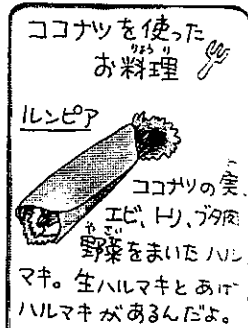 ココナツを使った
お料理
りょうり
ルンピア
ココナツの実、
エビ、トリ、ブタ肉
野菜をまいた ハル
やさい
マキ。生ハルマキとあげ
ハルマキがあるんだよ。